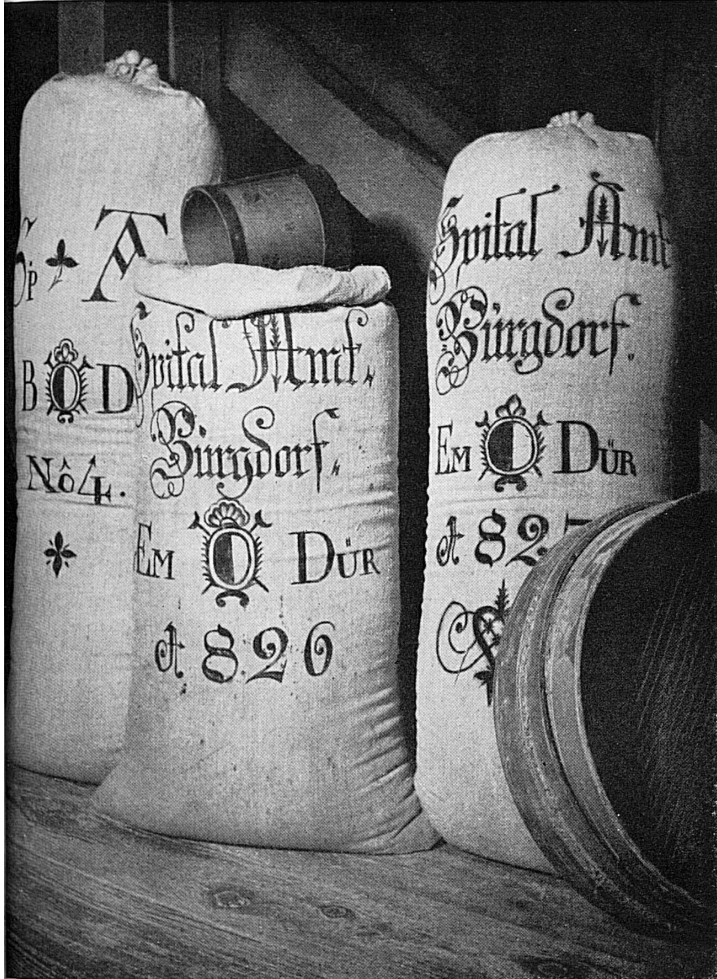 Sp A
B D
Nô 4.
Spital Amt.
Bürgdorf.
Em Dür
A 826
Spital Amt
Bürgdorf.
Em Dür
A 827